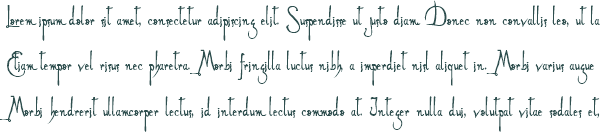 Lorem ipsum dolor sit amet, consectetur adipiscing elit. Suspendisse ut justo diam. Donec non convallis leo, ut la
Etiam tempor vel risus nec pharetra. Morbi fringilla luctus nibh, a imperdiet nisl aliquet in. Morbi varius augue
Morbi hendrerit ullamcorper lectus, id interdum lectus commodo at. Integer nulla dui, volutpat vitae sodales et,